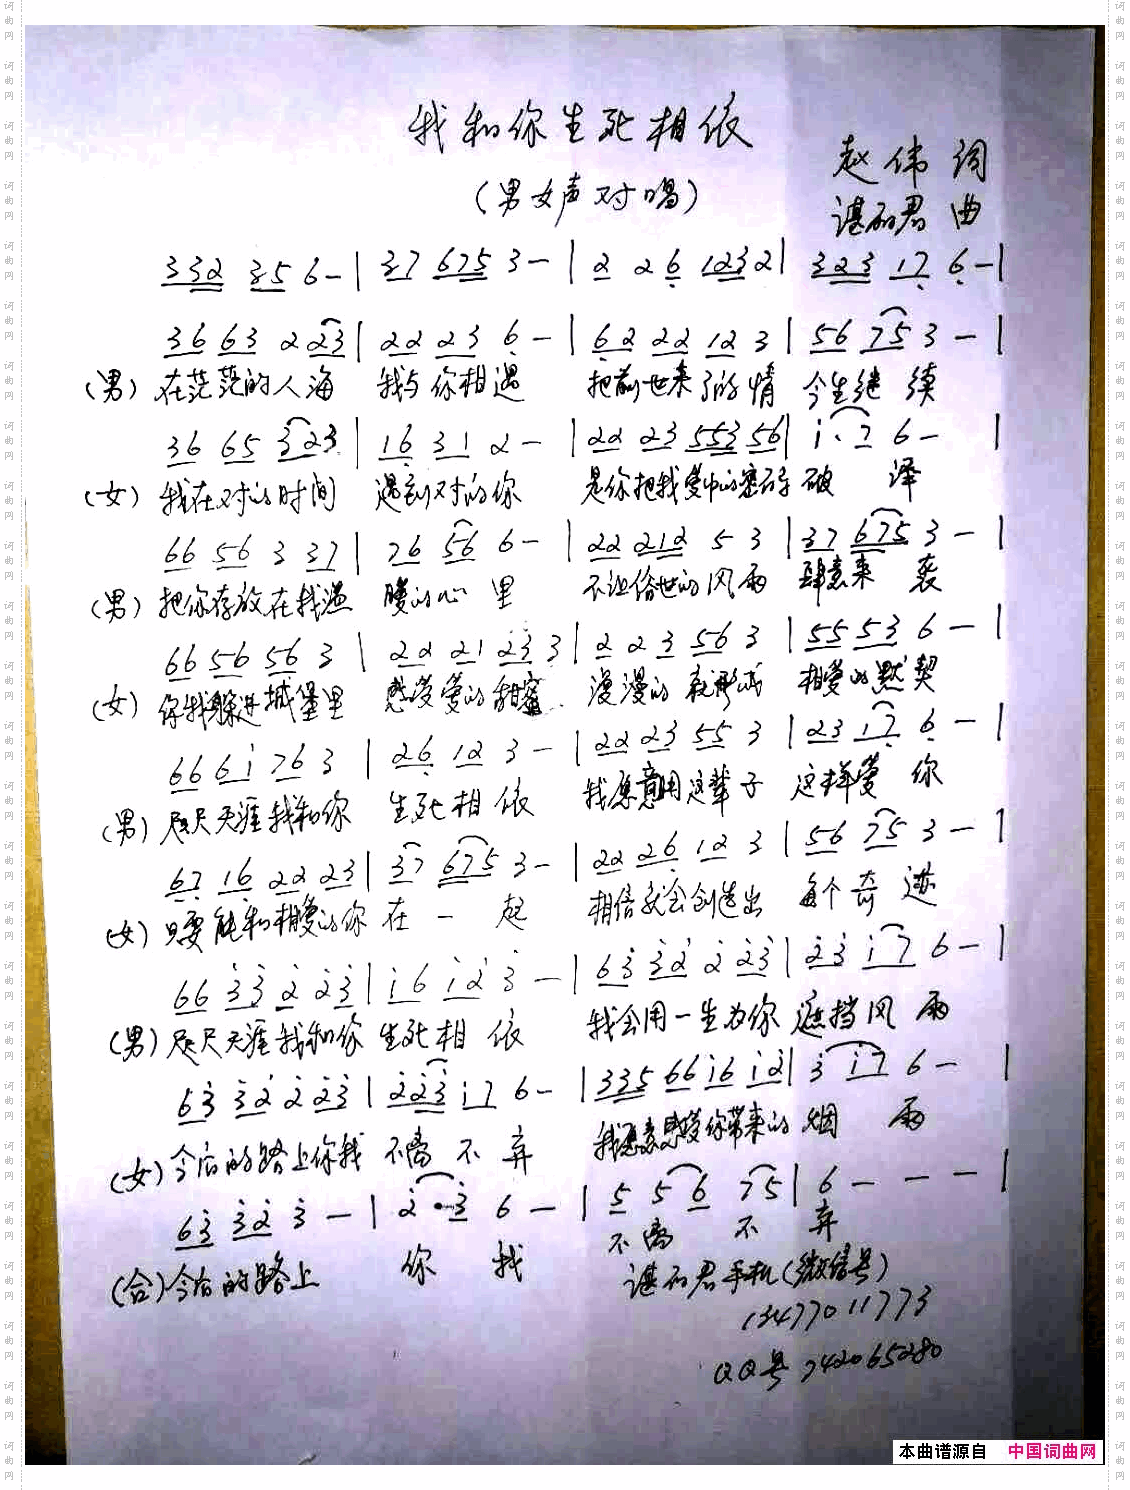 我和你生死相依
(男女声对唱)
赵伟 词
谌丽君 曲
332 35 6 - | 37 675 3 - | 2 26 1232 | 323 17 6 - |
36 63 2 23 | 22 23 6 - | 62 22 12 3 | 56 75 3 - |
(男) 在茫茫的人海 我与你相遇 把前世未了的情 今生继续
36 65 323 | 16 31 2 - | 22 23 553 56 | i· 7 6 - |
(女) 我在对的时间 遇到对的你 是你把我爱中的密码 破译
66 56 3 37 | 76 56 6 - | 22 212 5 3 | 37 675 3 - |
(男) 把你存放在我温 暖的心里 不让俗世的风雨 肆意来袭
66 56 56 3 | 22 21 23 3 | 2 2 3 56 3 | 55 53 6 - |
(女) 你我躲进城堡里 感受爱的甜蜜 漫漫的 形成 相爱的默契
66 6i 76 3 | 26 12 3 - | 22 23 55 3 | 23 17 6 - |
(男) 咫尺天涯我和你 生死相依 我愿意用这辈子 这样爱你
67 16 22 23 | 37 675 3 - | 22 26 12 3 | 56 75 3 - |
(女) 只要能和相爱的你 在一起 相信就会创造出 每个奇迹
66 33 2 23 | i6 i2 3 - | 63 32 2 23 | 23 i7 6 - |
(男) 咫尺天涯我和你 生死相依 我会用一生为你 遮挡风雨
63 32 2 23 | 223 i7 6 - | 335 66 i6 i2 | 3 i7 6 - |
(女) 今后的路上你我 不离不弃 我愿意感受你带来的 烟雨
63 32 3 - | 2 · 3 6 - | 5 5 6 75 | 6 - - - |
(合) 今后的路上 你我 不离不弃
谌丽君手机(微信号)
13477011773
QQ号 742065280
本曲谱源自 中国词曲网